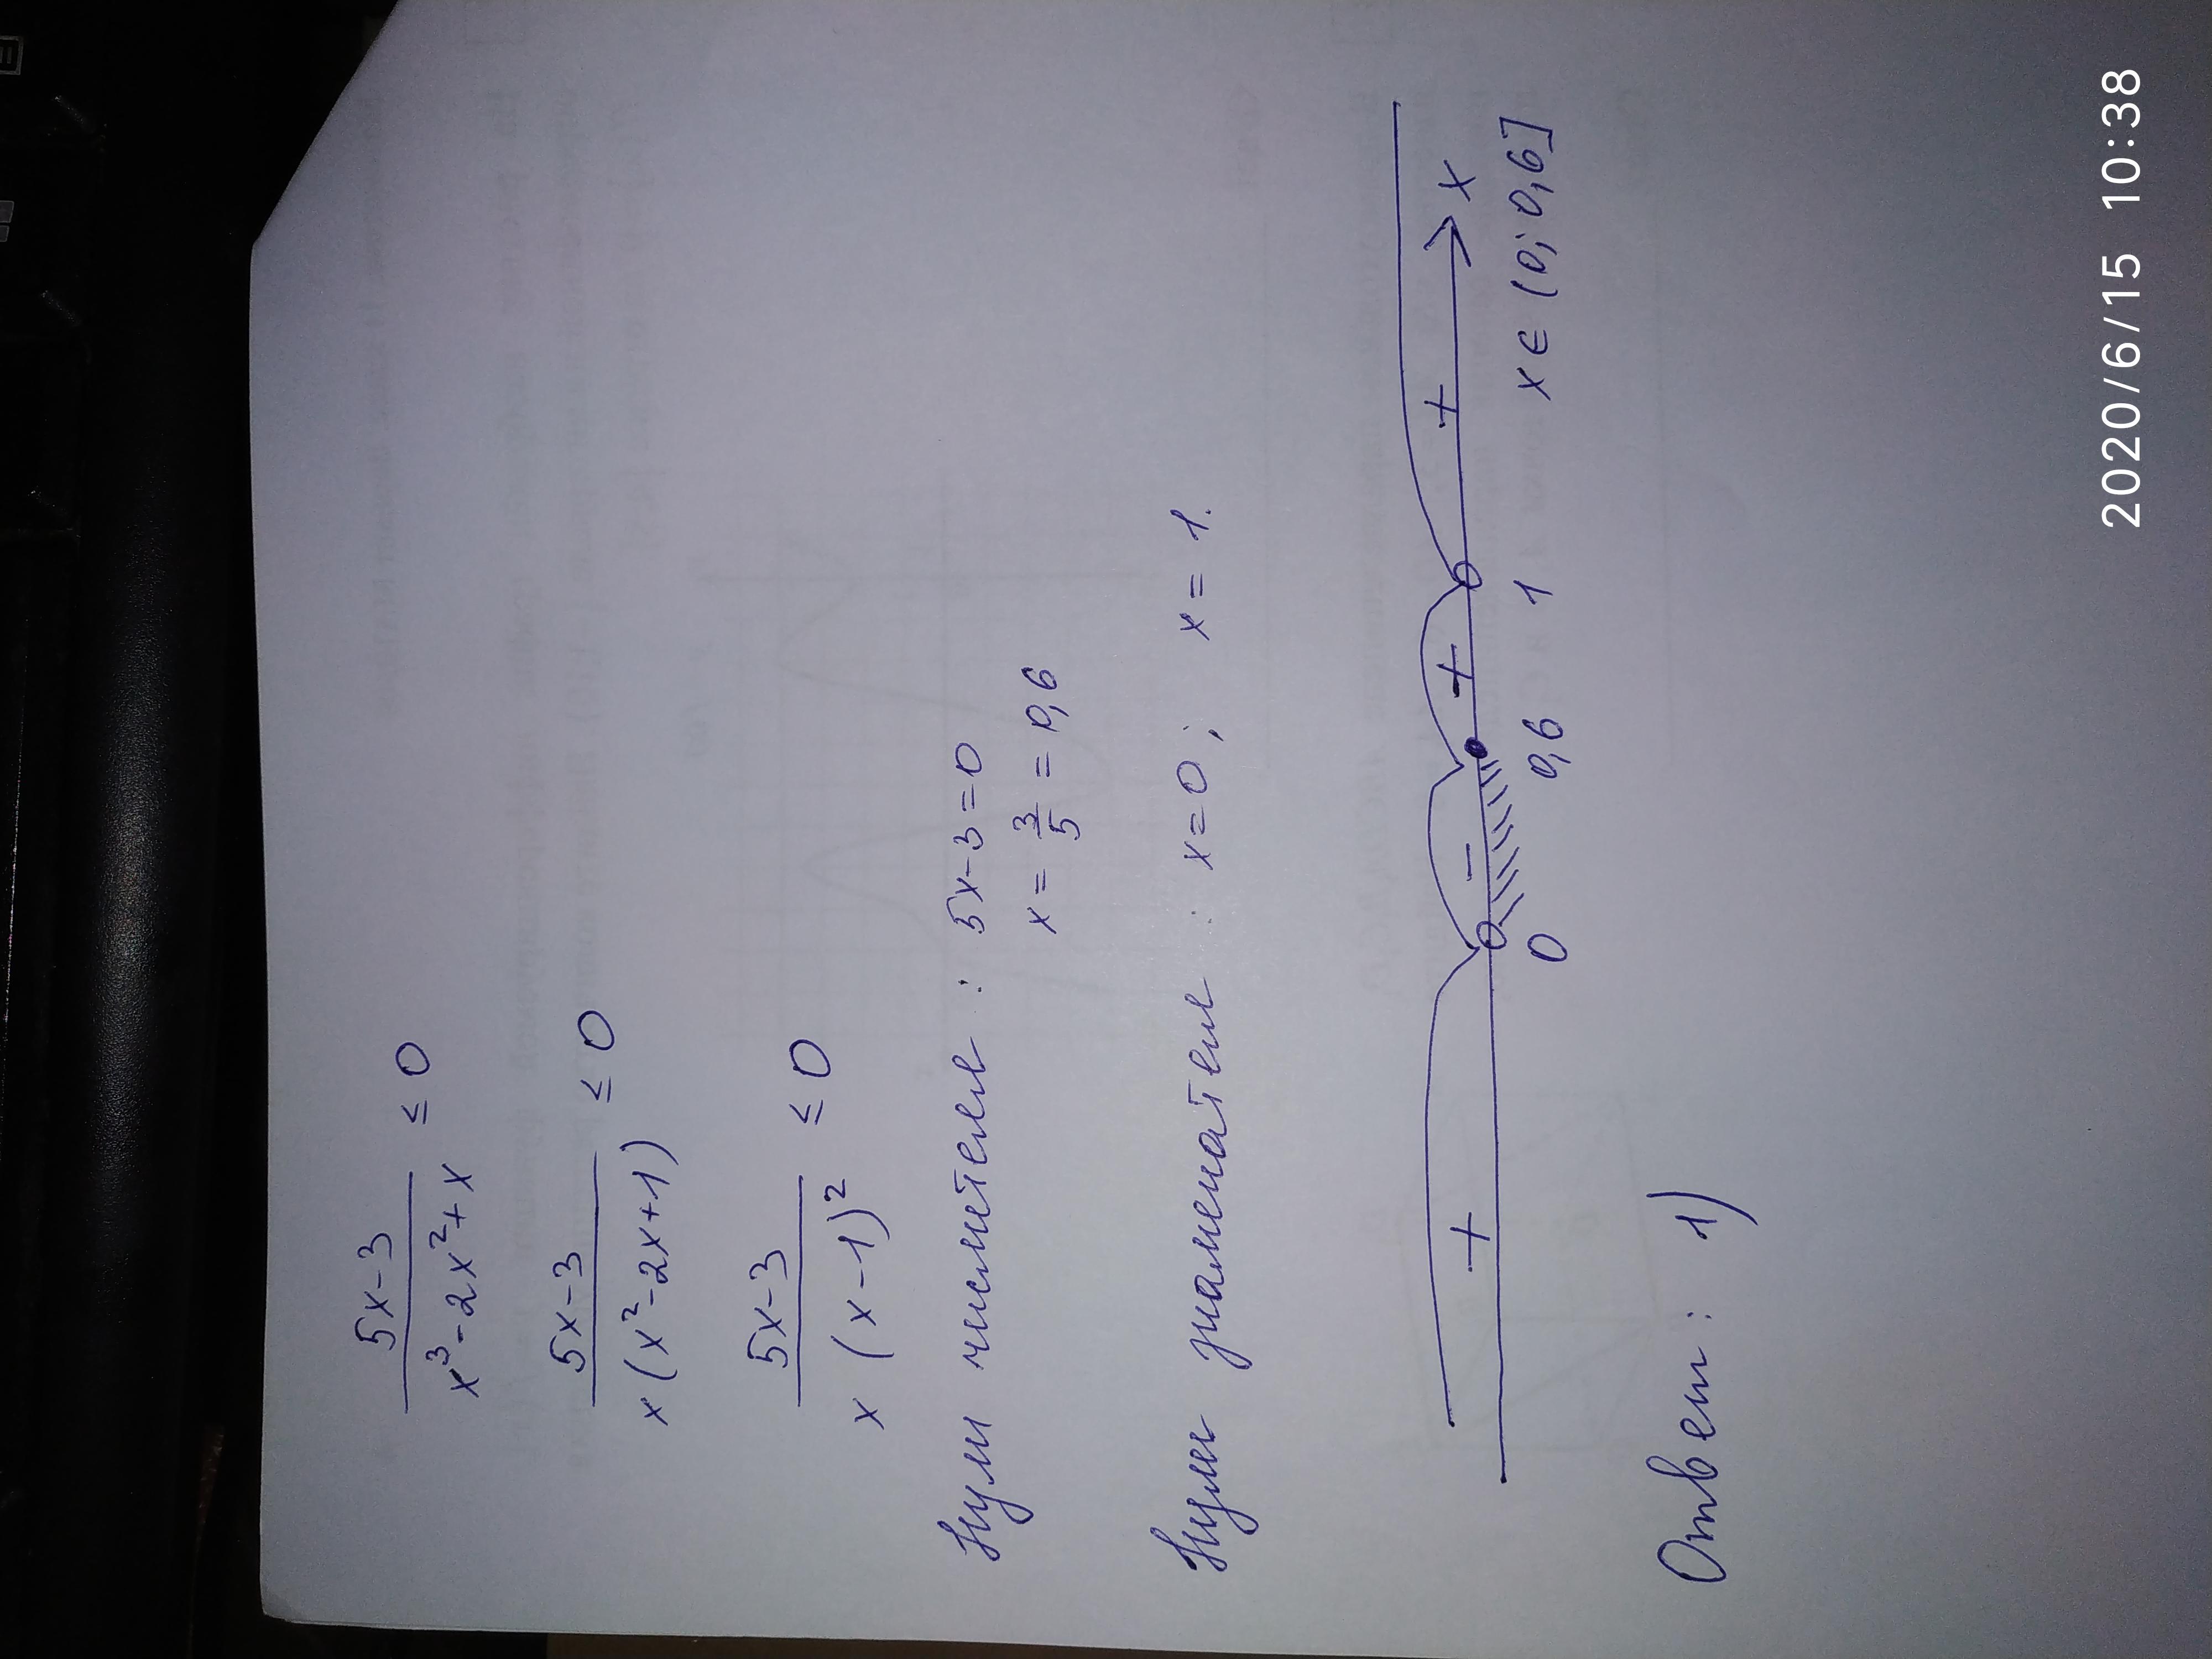 5x-3 / x³-2x²+x ≤ 0
5x-3 / x(x²-2x+1) ≤ 0
5x-3 / x(x-1)² ≤ 0
Нули числителя : 5x-3=0
x = 3/5 = 0,6
Нули знаменателя : x=0; x=1.
+ - + + x
0 0,6 1 x ∈ (0; 0,6]
Ответ: 1)
2020/6/15 10:38